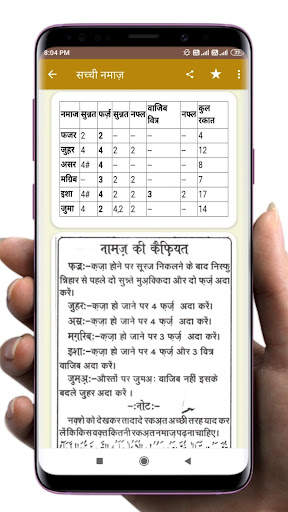 8:04 PM
सच्ची नमाज़
नमाज सुन्नत फर्ज़ सुन्नत नफ्ल वाजिब वित्र नफ्ल कुल रकात
फजर 2 2 -- -- -- -- 4
जुहर 4 4 2 2 -- -- 12
असर 4# 4 -- -- -- -- 8
मग्रिब -- 3 2 2 -- -- 7
इशा 4# 4 2 2 3 2 17
जुमा 4 2 4,2 2 -- -- 14
नामज़ की कैफ़ियत
फ़ज्र:–क़ज़ा होने पर सूरज निकलने के बाद निस्फु
न्निहार से पहले दो सुन्नते मुअक्किदा और दो फर्ज़ अदा
करें।
जुहर:–क़ज़ा हो जाने पर 4 फर्ज़ अदा करें।
अस्र:–क़ज़ा हो जाने पर 4 फर्ज़ अदा करें।
मग़रिब:–क़ज़ा हो जाने पर 3 फर्ज़ अदा करें।
इशा:–क़ज़ा हो जाने पर 4 फर्ज़ और 3 वित्र
वाजिब अदा करें।
जुम्अ:–औरतों पर जुमअः वाजिब नहीं इसके
बदले जुहर अदा करें।
–:नोट:–
नक्शे को देखकर तादादे रकअत अच्छी तरह याद कर
लें कि किस वक्त कितनी रकअत नमाज़ पढ़ना चाहिए।